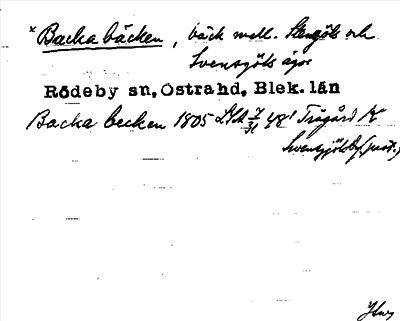 * Backa bäcken, bäck mell. Stengöls och
Svensgöls ägor
Rödeby sn, Östrahd, Blek. län
Backa becken 1805 LSA 7/31 Trägård
Svensgölsby (prot.)